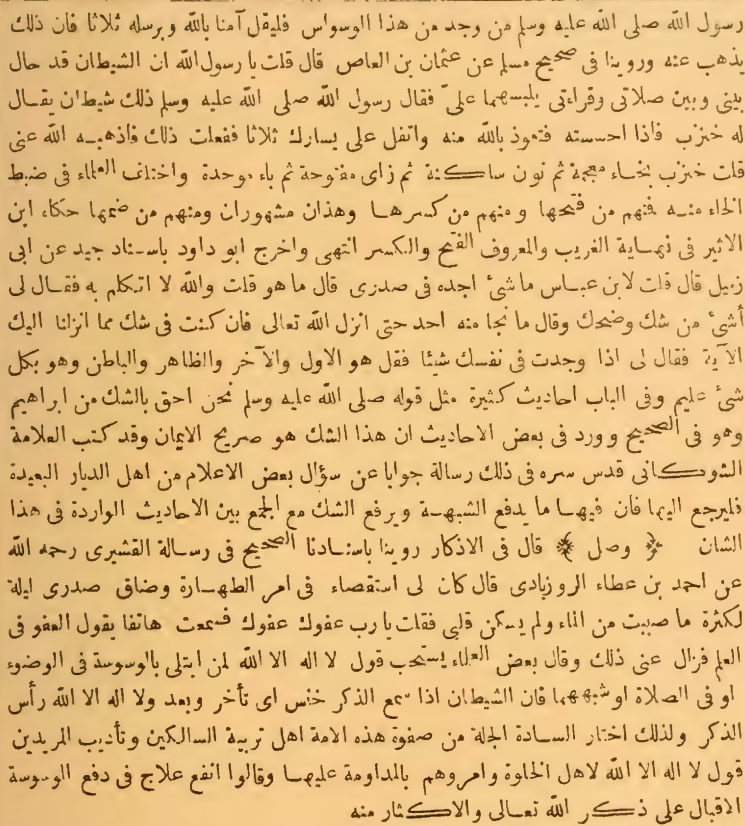 رسول الله صلى الله عليه وسلم من وجد من هذا الوسواس فليقل آمنا بالله وبرسله ثلاثا فان ذلك
يذهب عنه وروينا فى صحيح مسلم عن عثمان بن العاص قال قلت يا رسول الله ان الشيطان قد حال
بينى وبين صلاتى وقراءتى يلبسهما علىّ فقال رسول الله صلى الله عليه وسلم ذلك شيطان يقال
له خنزب فاذا احسسته فتعوذ بالله منه واتفل على يسارك ثلاثا ففعلت ذلك فاذهبه الله عنى
قلت خنزب بخاء معجمة ثم نون ساكنة ثم زاى مفتوحة ثم باء موحدة واختلف العلماء فى ضبط
الخاء منه فمنهم من فتحها ومنهم من كسرها وهذان مشهوران ومنهم من ضمها حكاه ابن
الاثير فى نهاية الغريب والمعروف الفتح والكسر انتهى واخرج ابو داود باسناد جيد عن ابى
زميل قال قلت لابن عباس ما شئ اجده فى صدرى قال ما هو قلت والله لا اتكلم به فقال لى
أشئ من شك وضحك وقال ما نجا منه احد حتى انزل الله تعالى فان كنت فى شك مما انزلنا اليك
الآية فقال لى اذا وجدت فى نفسك شيئا فقل هو الاول والآخر والظاهر والباطن وهو بكل
شئ عليم وفى الباب احاديث كثيرة مثل قوله صلى الله عليه وسلم نحن احق بالشك من ابراهيم
وهو فى الصحيح وورد فى بعض الاحاديث ان هذا الشك هو صريح الايمان وقد كتب العلامة
الشوكانى قدس سره فى ذلك رسالة جوابا عن سؤال بعض الاعلام من اهل الديار البعيدة
فليرجع اليها فان فيها ما يدفع الشبهة ويرفع الشك مع الجمع بين الاحاديث الواردة فى هذا
الشان ﴿ وصل ﴾ قال فى الاذكار روينا باسنادنا الصحيح فى رسالة القشيرى رحمه الله
عن احمد بن عطاء الروزبادى قال كان لى استقصاء فى امر الطهارة وضاق صدرى ليلة
لكثرة ما صببت من الماء ولم يسكن قلبى فقلت يا رب عفوك عفوك فسمعت هاتفا يقول العفو فى
العلم فزال عنى ذلك وقال بعض العلماء يستحب قول لا اله الا الله لمن ابتلى بالوسوسة فى الوضوء
او فى الصلاة او شبههما فان الشيطان اذا سمع الذكر خنس اى تأخر وبعد ولا اله الا الله رأس
الذكر ولذلك اختار السادة الجلة من صفوة هذه الامة اهل تربية السالكين وتأديب المريدين
قول لا اله الا الله لاهل الخلوة وامروهم بالمداومة عليها وقالوا انفع علاج فى دفع الوسوسة
الاقبال على ذكر الله تعالى والاكثار منه